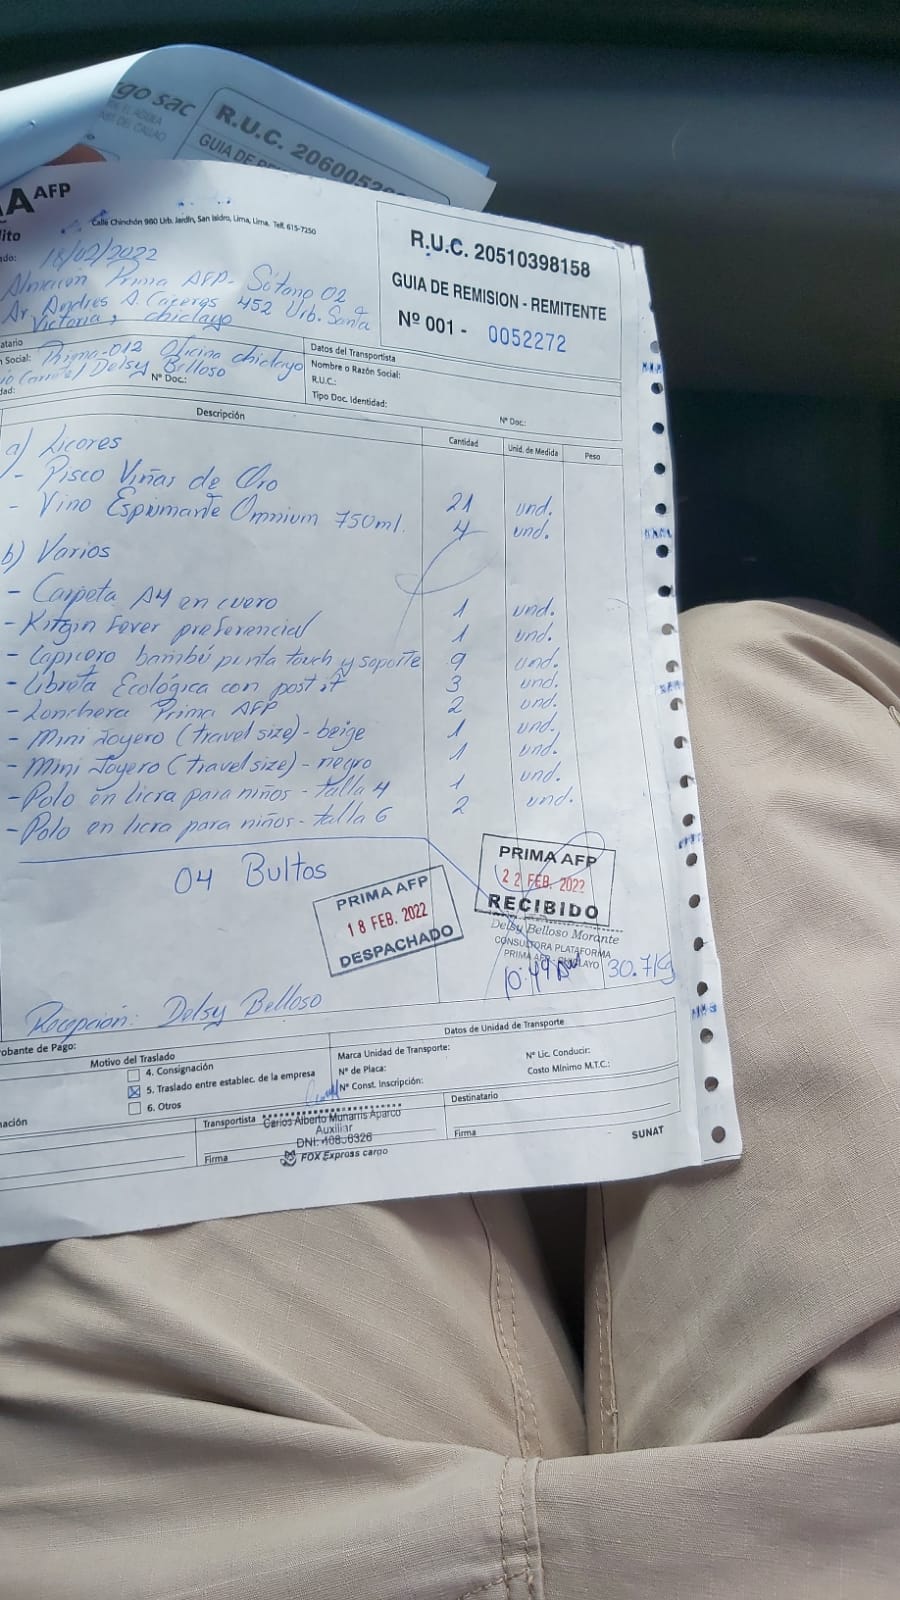 go sac
R.U.C. 2060052
GUIA DE
A AFP
Calle Chinchón 980 Urb. Jardín, San Isidro, Lima, Lima. Telf. 615-7250
R.U.C. 20510398158
GUIA DE REMISION - REMITENTE
Nº 001 - 0052272
18/02/2022
Almacén Prima AFP - Sótano 02
Av. Andres A. Cáceres 452 Urb. Santa
Victoria, chiclayo
Social: Prima-012 Oficina chiclayo
Delsy Belloso
Nº Doc:
Datos del Transportista
Nombre o Razón Social:
R.U.C.:
Tipo Doc. Identidad:
Nº Doc:
Descripción Cantidad Unid. de Medida Peso
a) Licores
- Pisco Viñas de Oro 21 und.
- Vino Espumante Omnium 750ml. 4 und.
b) Varios
- Carpeta A4 en cuero 1 und.
- Kitgin Fever preferencial 1 und.
- Lapicero bambú punta touch y soporte 9 und.
- Libreta Ecológica con post it 3 und.
- Lonchera Prima AFP 2 und.
- Mini Joyero (travel size) - beige 1 und.
- Mini Joyero (travel size) - negro 1 und.
- Polo en licra para niños - talla 4 1 und.
- Polo en licra para niños - talla 6 2 und.
04 Bultos
PRIMA AFP
18 FEB. 2022
DESPACHADO
PRIMA AFP
22 FEB. 2022
RECIBIDO
Delsy Belloso Morante
CONSULTORA PLATAFORMA
PRIMA AFP - CHICLAYO
10:49 AM
30.7Kg
Recepción: Delsy Belloso
obante de Pago:
Motivo del Traslado
4. Consignación
5. Traslado entre establec. de la empresa
6. Otros
Datos de Unidad de Transporte
Marca Unidad de Transporte:
Nº de Placa:
Nº Const. Inscripción:
Nº Lic. Conducir:
Costo Mínimo M.T.C.:
Transportista
Carlos Alberto Munaris Aparco
Auxiliar
FOX Express cargo
Firma
Destinatario
Firma
SUNAT